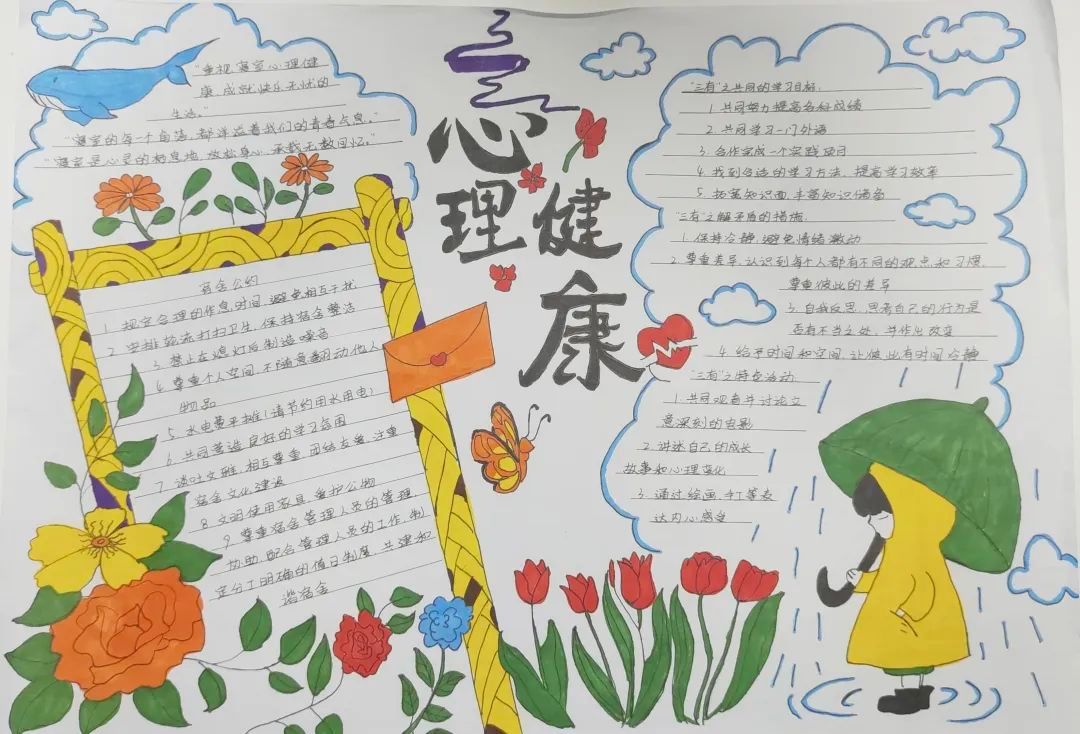 "重视寝室心理健
康,成就快乐无忧的
生活。"
"寝室的每一个角落,都洋溢着我们的青春点息。"
"寝室是心灵的栖息地,放松身心,承载无数回忆。"
心
理健
康
宿舍公约
1. 规定合理的作息时间,避免相互干扰
2. 安排轮流打扫卫生,保持宿舍整洁
3. 禁止在熄灯后制造噪音
4. 尊重个人空间,不随意翻动他人
物品
5. 水电费平摊(请节约用水用电)
6. 共同营造良好的学习氛围
7. 谈吐文雅,相互尊重,团结友善,注重
宿舍文化建设
8. 文明使用家具,爱护公物
9. 尊重宿舍管理人员的管理,
协助、配合管理人员的工作,制
定分工明确的值日制度,共建和
谐宿舍
"三有"之共同的学习目标:
1. 共同努力提高各科成绩
2. 共同学习一门外语
3. 合作完成一个实践项目
4. 找到合适的学习方法,提高学习效率
5. 拓宽知识面,丰富知识储备
"三有"之解矛盾的措施:
1. 保持冷静,避免情绪激动
2. 尊重差异,认识到每个人都有不同的观点和习惯,
尊重彼此的差异
3. 自我反思,思考自己的行为是
否有不当之处,并作出改变
4. 给予时间和空间,让彼此有时间冷静
"三有"之特色活动
1. 共同观看并讨论立
意深刻的电影
2. 讲述自己的成长
故事和心理变化
3. 通过绘画、手工等表
达内心感受